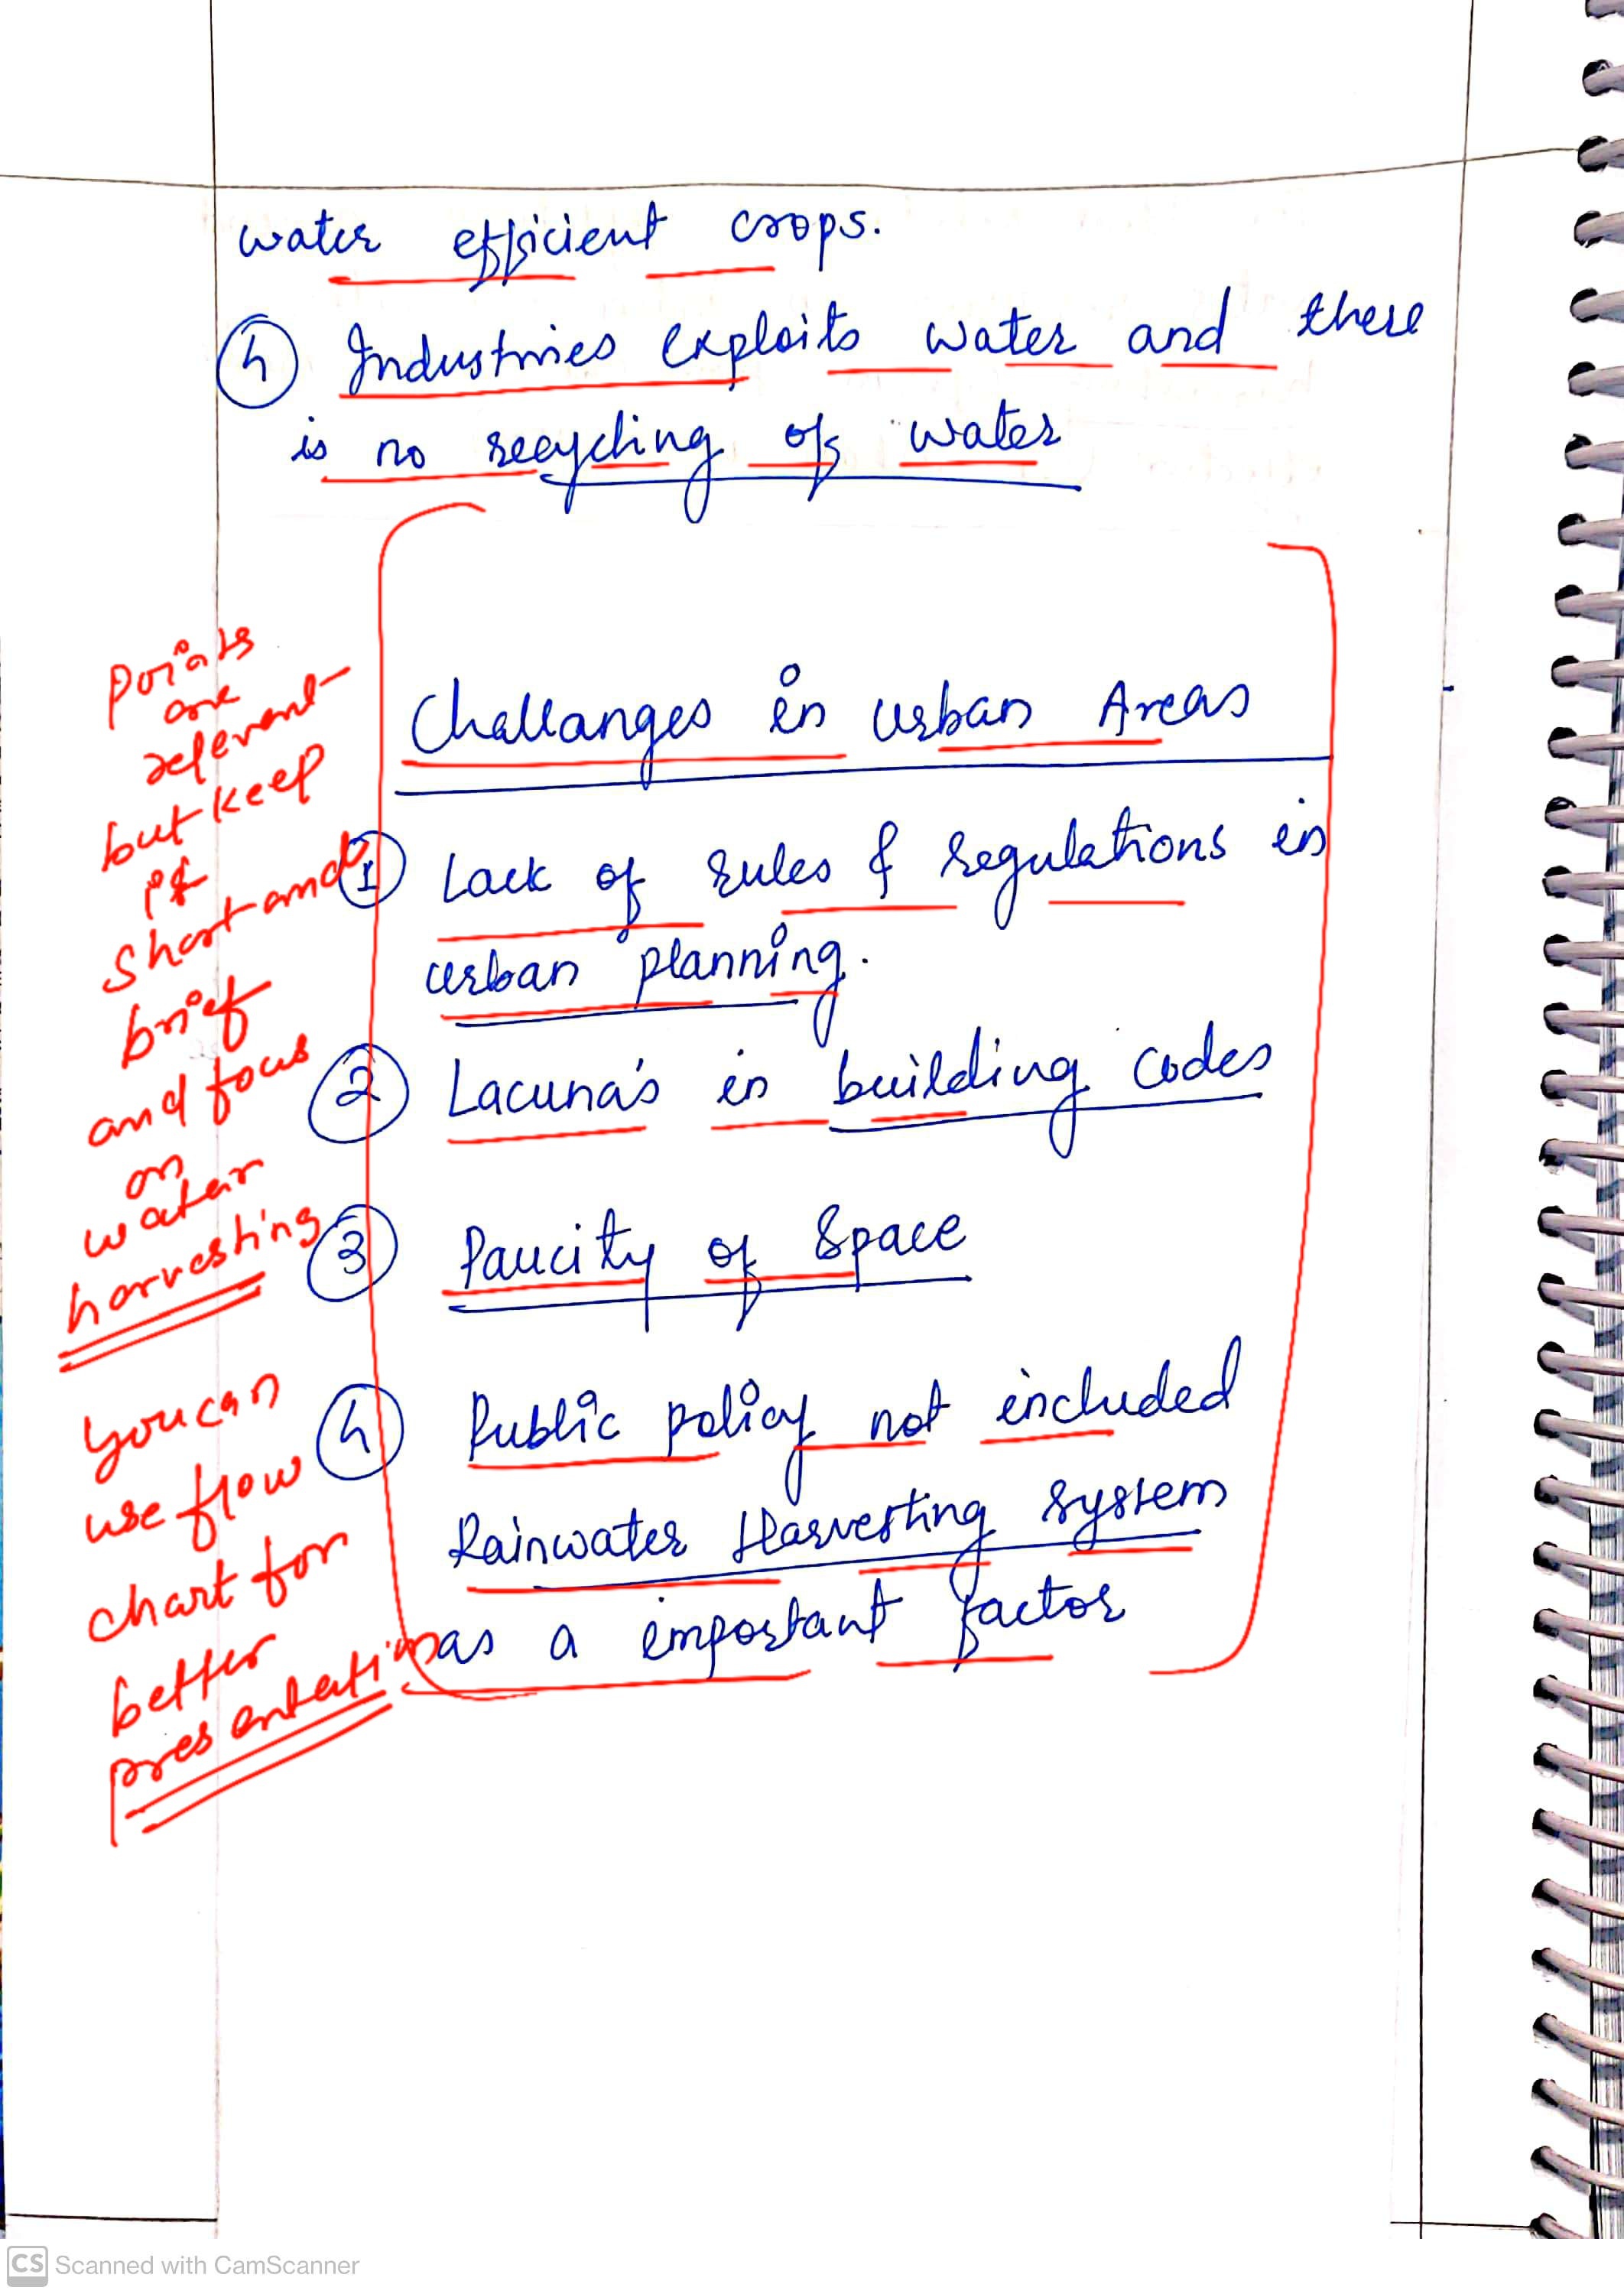 water efficient crops.
4 Industries exploits water and there
is no recycling of water
Challanges in Urban Areas
1 Lack of rules & regulations in
urban planning.
2 Lacuna's in building codes
3 Paucity of Space
4 Public policy not included
Rainwater Harvesting system
as a important factor
Points
are
relevant
but keep
it
short and
brief
and focus
on
water
harvesting
you can
use flow
chart for
better
presentation
CS Scanned with CamScanner